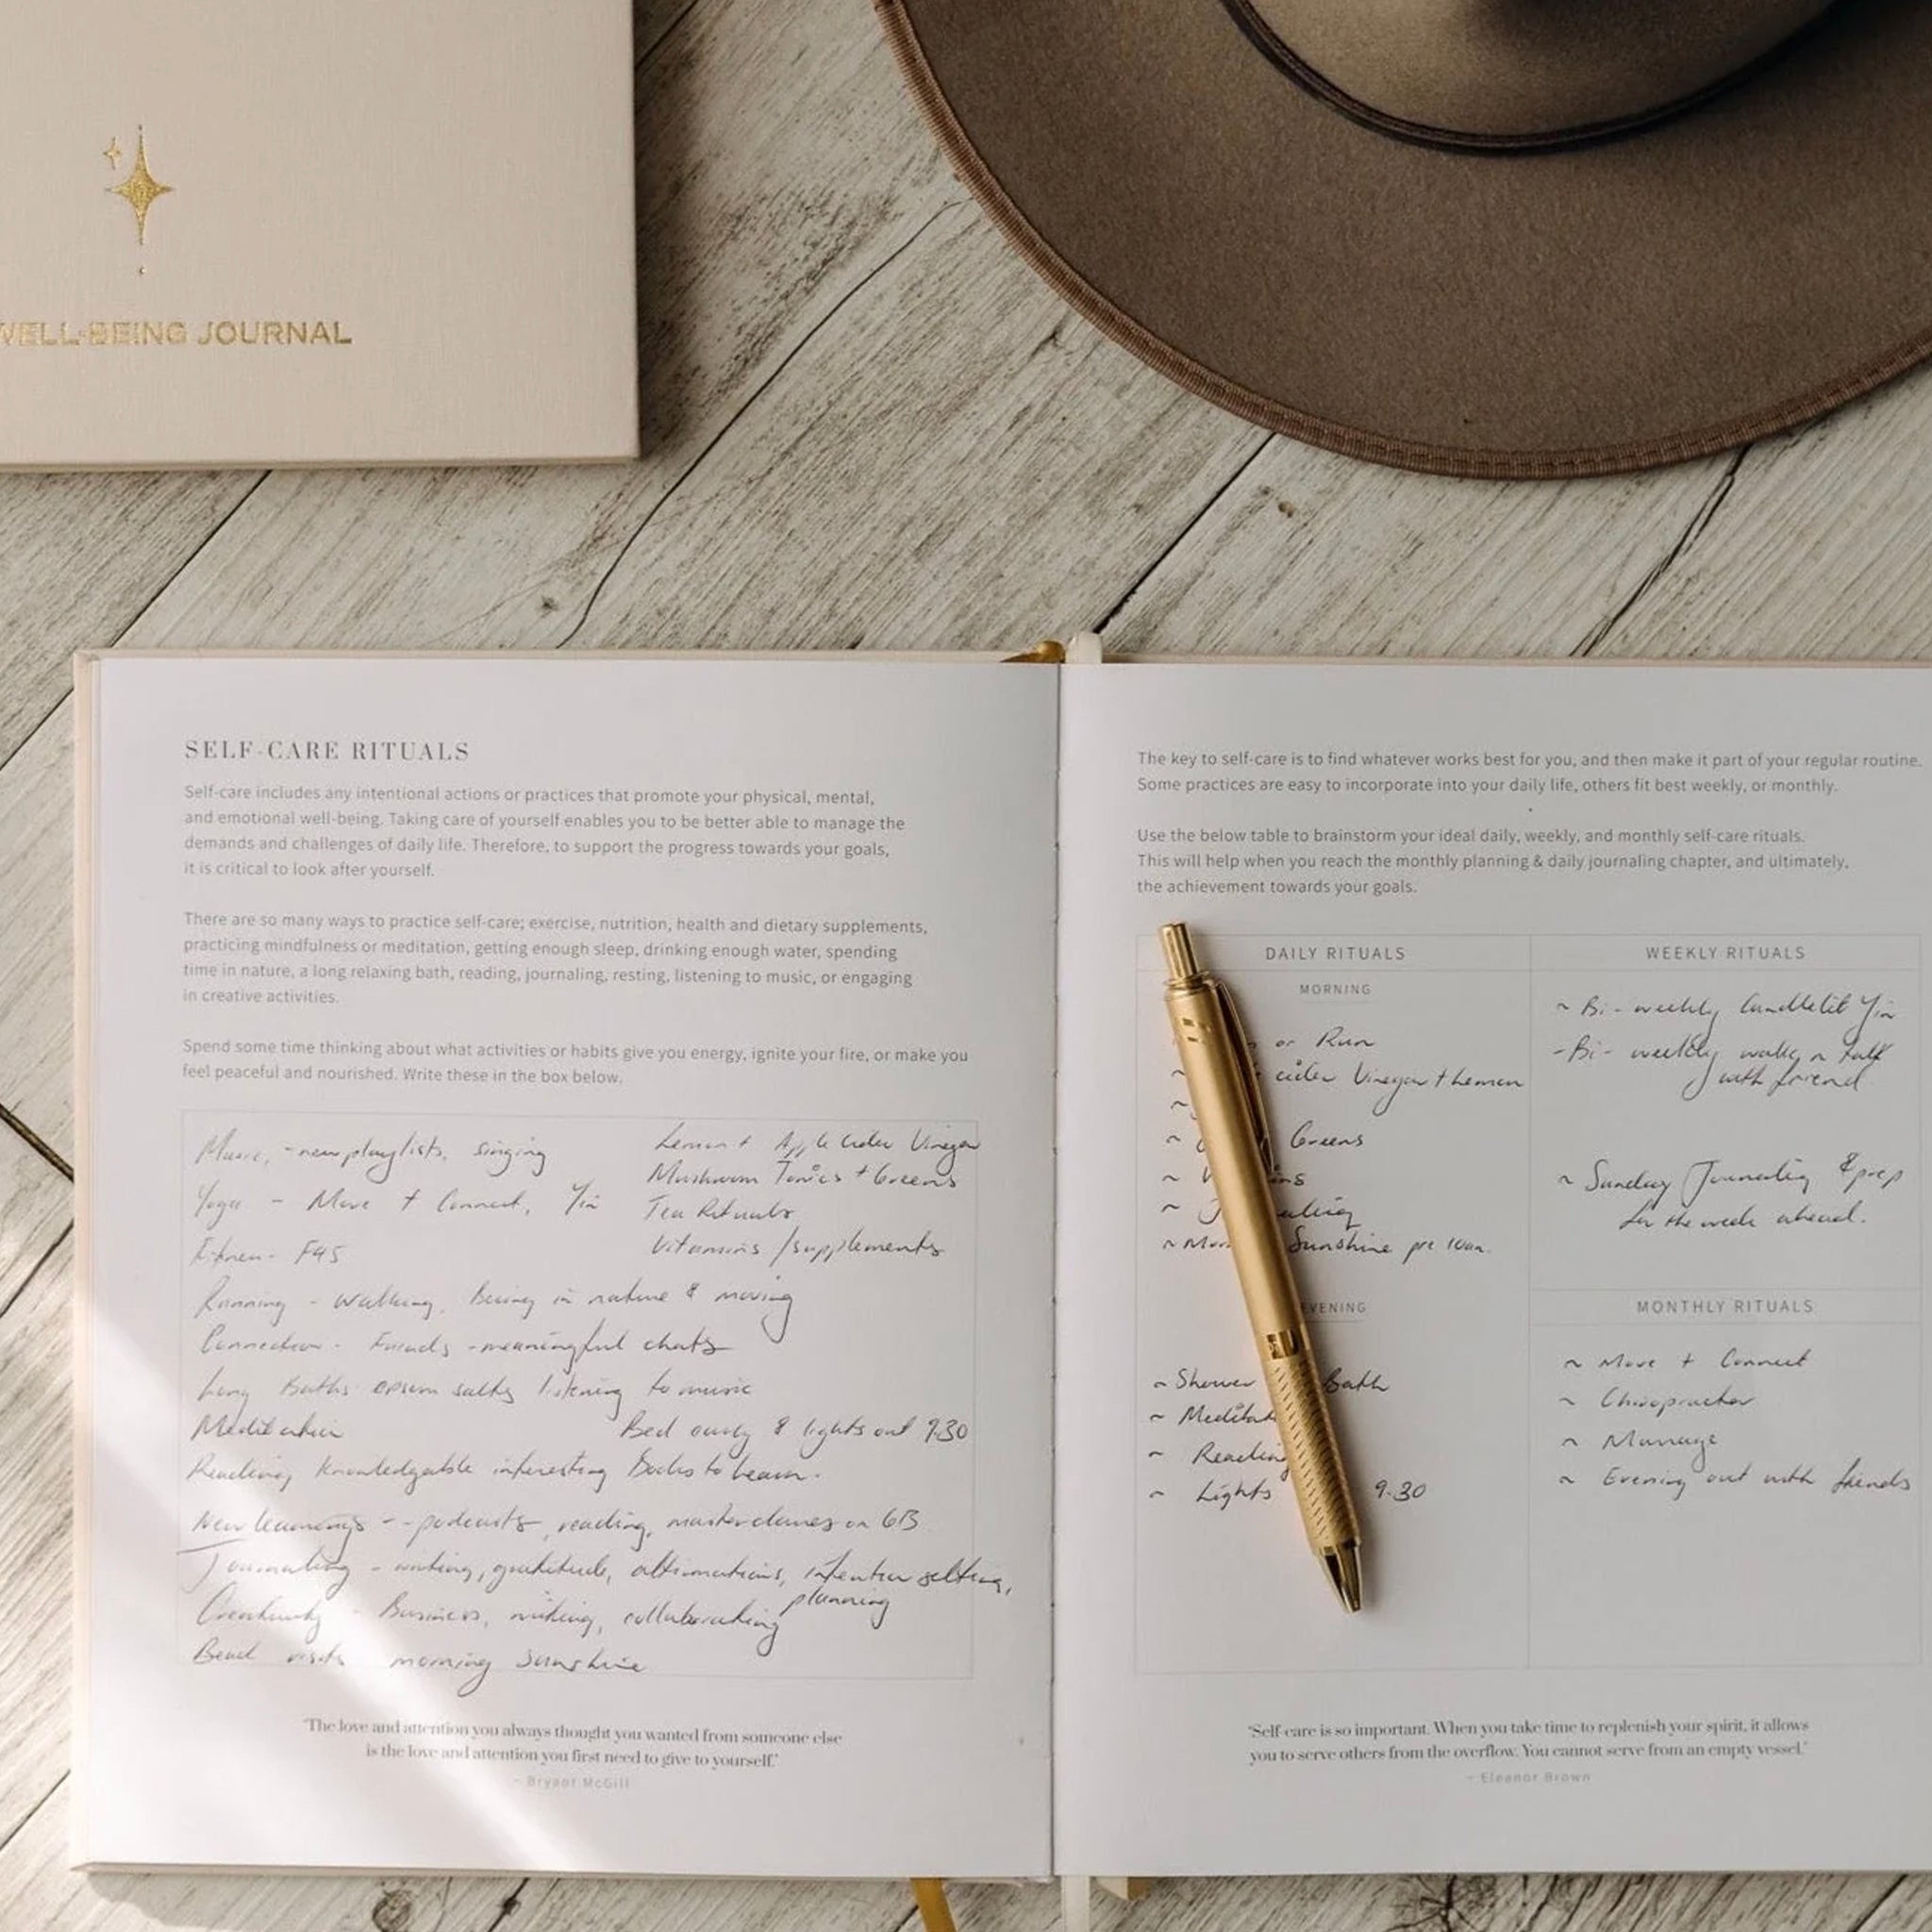 WELL-BEING JOURNAL
SELF-CARE RITUALS
Self-care includes any intentional actions or practices that promote your physical, mental,
and emotional well-being. Taking care of yourself enables you to be better able to manage the
demands and challenges of daily life. Therefore, to support the progress towards your goals,
it is critical to look after yourself.
There are so many ways to practice self-care; exercise, nutrition, health and dietary supplements,
practicing mindfulness or meditation, getting enough sleep, drinking enough water, spending
time in nature, a long relaxing bath, reading, journaling, resting, listening to music, or engaging
in creative activities.
Spend some time thinking about what activities or habits give you energy, ignite your fire, or make you
feel peaceful and nourished. Write these in the box below.
Music, - new playlists, singing
Yoga - Move + Connect, Yin
Fitness - F45
Lemon + Apple Cider Vinegar
Mushroom Tonics + Greens
Tea Rituals
Vitamins / supplements
Running - walking, Being in nature & moving
Connection - Friends - meaningful chats
Long Baths epsom salts listening to music
Meditation
Bed early & lights out 9.30
Reading knowledgable interesting Books to learn.
New learnings - - podcasts, reading, masterclasses on GB
Journaling - writing, gratitude, affirmations, intention setting,
planning
Creativity - Business, writing, collaborating
Beach visits morning sunshine
'The love and attention you always thought you wanted from someone else
is the love and attention you first need to give to yourself.'
~ Bryant McGill
The key to self-care is to find whatever works best for you, and then make it part of your regular routine.
Some practices are easy to incorporate into your daily life, others fit best weekly, or monthly.
Use the below table to brainstorm your ideal daily, weekly, and monthly self-care rituals.
This will help when you reach the monthly planning & daily journaling chapter, and ultimately,
the achievement towards your goals.
DAILY RITUALS
MORNING
or Run
cider Vinegar + Lemon
~
~ Greens
~
~
~ Sunshine pre 10am.
EVENING
~ Shower Bath
~
~ Reading
~ Lights 9.30
WEEKLY RITUALS
~ Bi-weekly Candlelit Yin
- Bi-weekly walk n talk
with friend
~ Sunday Journaling & prep
for the week ahead.
MONTHLY RITUALS
~ Move + Connect
~ Chiropractor
~ Massage
~ Evening out with friends
'Self-care is so important. When you take time to replenish your spirit, it allows
you to serve others from the overflow. You cannot serve from an empty vessel.'
~ Eleanor Brown